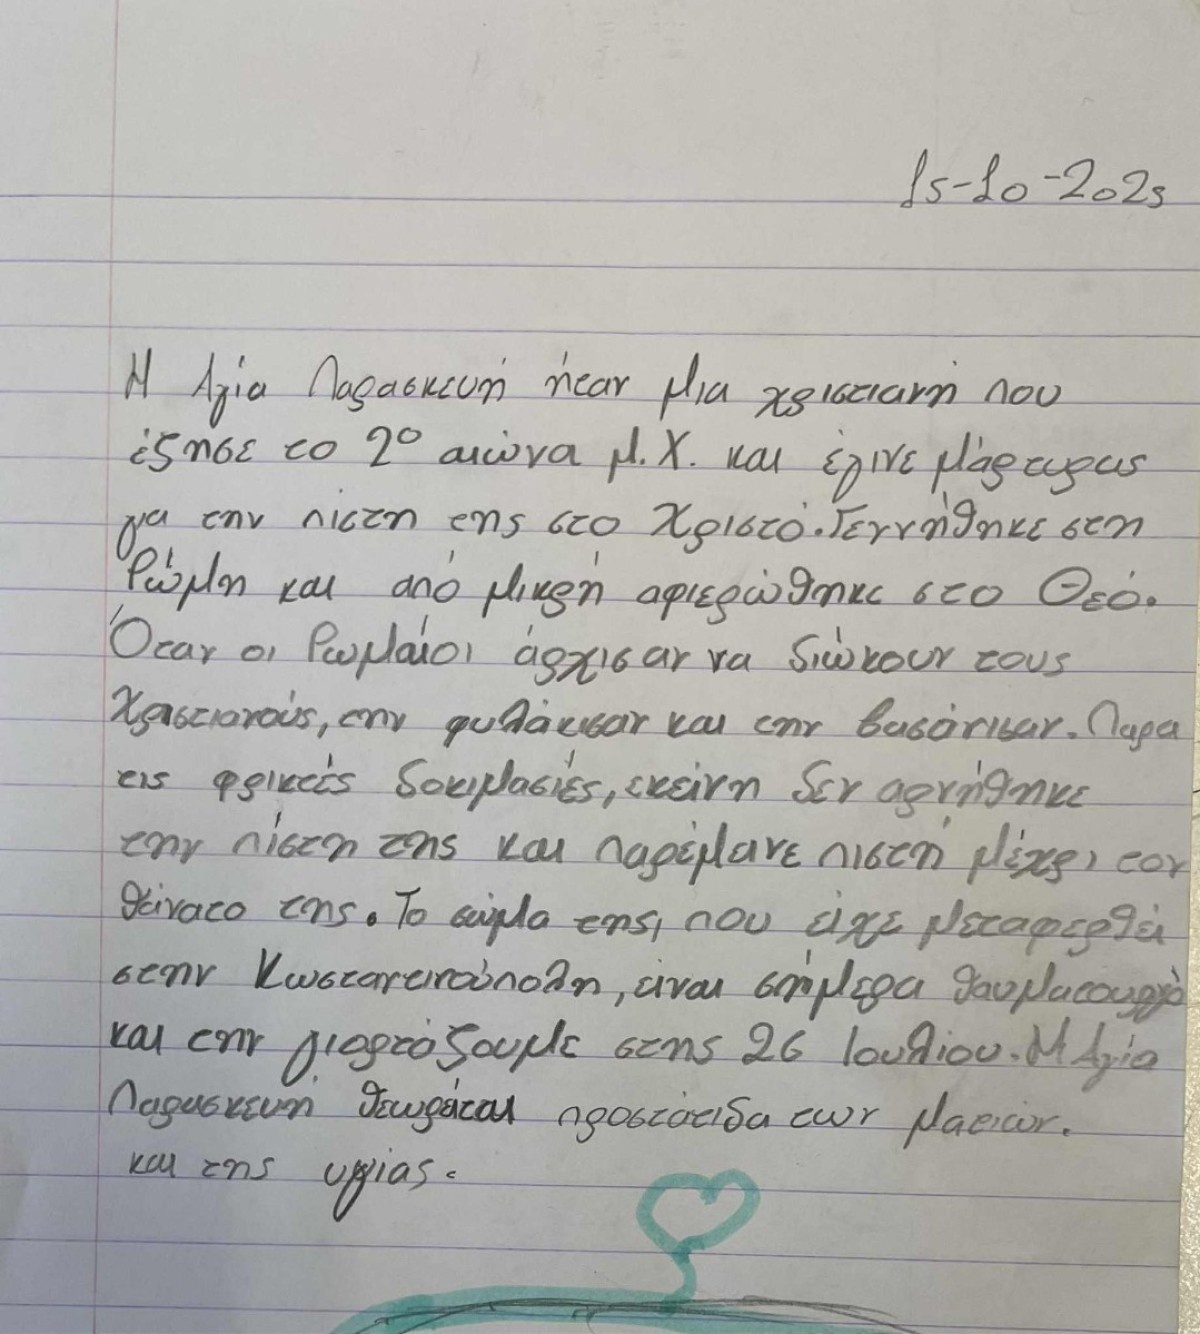 15-10-2025
Η Αγία Παρασκευή ήταν μια χριστιανή που
έζησε το 2ο αιώνα μ.Χ. και έγινε μάρτυρας
για την πίστη της στο Χριστό. Γεννήθηκε στη
Ρώμη και από μικρή αφιερώθηκε στο Θεό.
Όταν οι Ρωμαίοι άρχισαν να διώκουν τους
Χριστιανούς, την φυλάκισαν και την βασάνισαν. Παρα
τις φρικτές δοκιμασίες, εκείνη δεν αρνήθηκε
την πίστη της και παρέμεινε πιστή μέχρι τον
θάνατο της. Το σώμα της, που είχε μεταφερθεί
στην Κωσταντινούπολη, είναι σήμερα θαυματουργό
και την γιορτάζουμε στης 26 Ιουλίου. Η Αγία
Παρασκευή θεωράται προστάτιδα των ματιών.
και της υγίας.